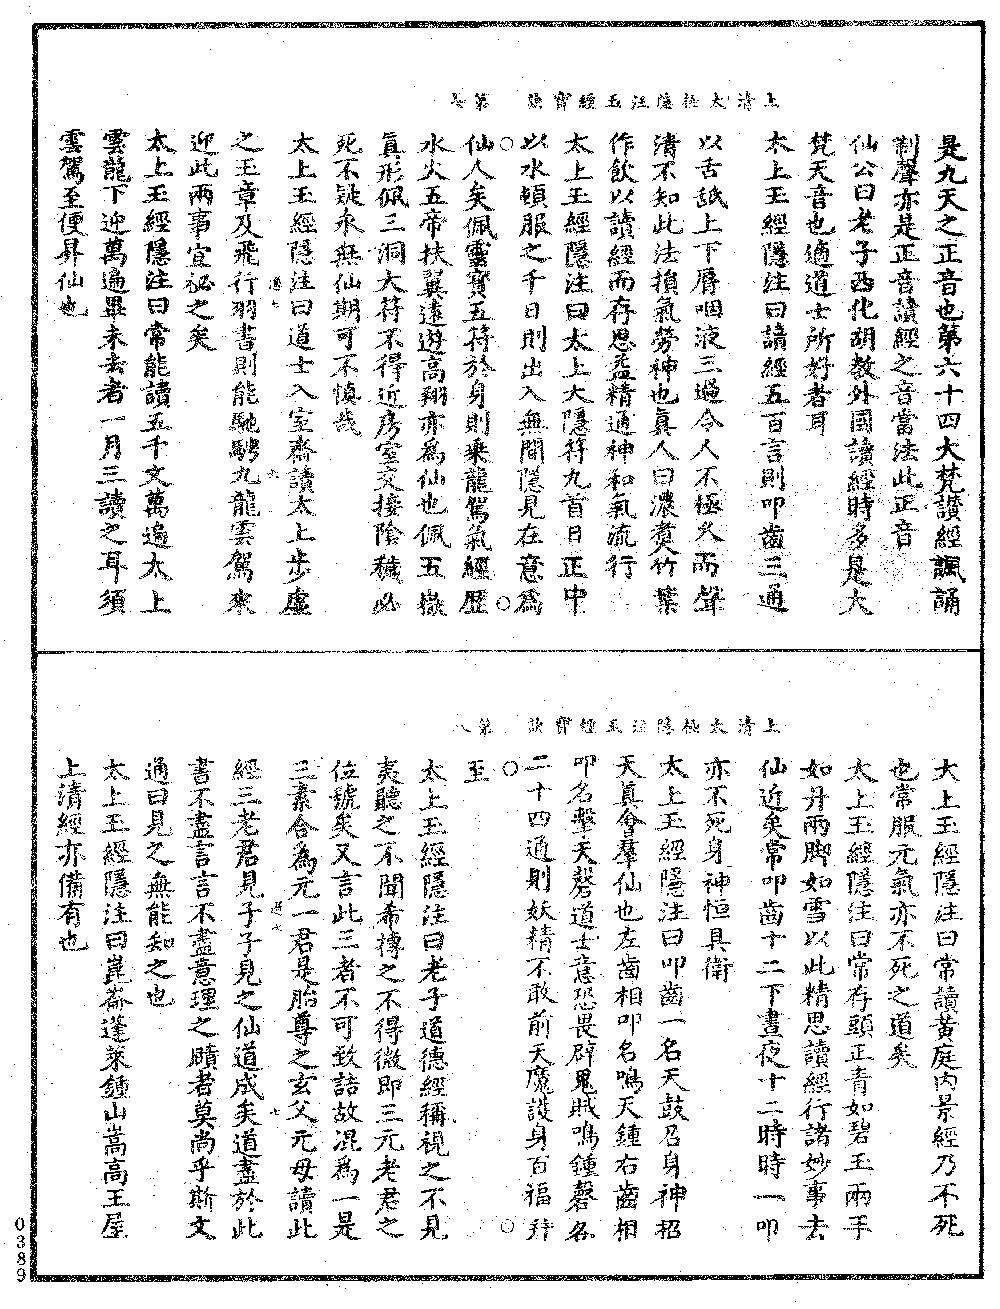 上清太極隱注玉經寶訣　第七
是九天之正音也第六十四大梵讚經諷誦
制聲亦是正音讀經之音當法此正音
仙公曰老子西化胡教外國讀經時多是大
梵天音也適道士所好者耳
太上玉經隱注曰讀經五百言則叩齒三通
以舌舐上下脣咽液三過令人不極久而聲
清不知此法損氣勞神也真人曰濃煑竹葉
作飲以讀經而存思益精通神和氣流行
太上玉經隱注曰太上大隱符九首日正中
以水頓服之千日則出入無間隱見在意爲
仙人矣佩靈寶五符於身則乗龍駕氣經歷
水火五帝扶翼遠遊高翔亦爲仙也佩五嶽
真形佩三洞大符不得近房室交接陰穢必
死不疑永無仙期可不慎哉
太上玉經隱注曰道士入室齋讀太上步虛
之玉章及飛行羽書則能馳騁九龍雲駕來
迎此兩事宜祕之矣
太上玉經隱注曰常能讀五千文萬遍太上
雲龍下迎萬遍畢未去者一月三讀之耳須
雲駕至便昇仙也
上清太極隱注玉經寶訣　第八
太上玉經隱注曰常讀黃庭内景經乃不死
也常服元氣亦不死之道矣
太上玉經隱注曰常存頭正青如碧玉兩手
如丹兩脚如雪以此精思讀經行諸妙事去
仙近矣常叩齒十二下晝夜十二時時一叩
亦不死身神恒具衛
太上玉經隱注曰叩齒一名天鼓召身神招
天真會羣仙也左齒相叩名鳴天鍾右齒相
叩名擊天磬道士意恐畏辟鬼賊鳴鍾磬各
二十四通則妖精不敢前天魔護身百福并
至
太上玉經隱注曰老子道德經稱視之不見
夷聽之不聞希摶之不得微即三元老君之
位號矣又言此三者不可致詰故混爲一是
三素合爲元一君是胎尊之玄父元母讀此
經三老君見子子見之仙道成矣道盡於此
書不盡言言不盡意理之賾者莫尚乎斯文
通曰見之無能知之也
太上玉經隱注曰崑崙蓬萊鍾山嵩高王屋
上清經亦備有也
0389